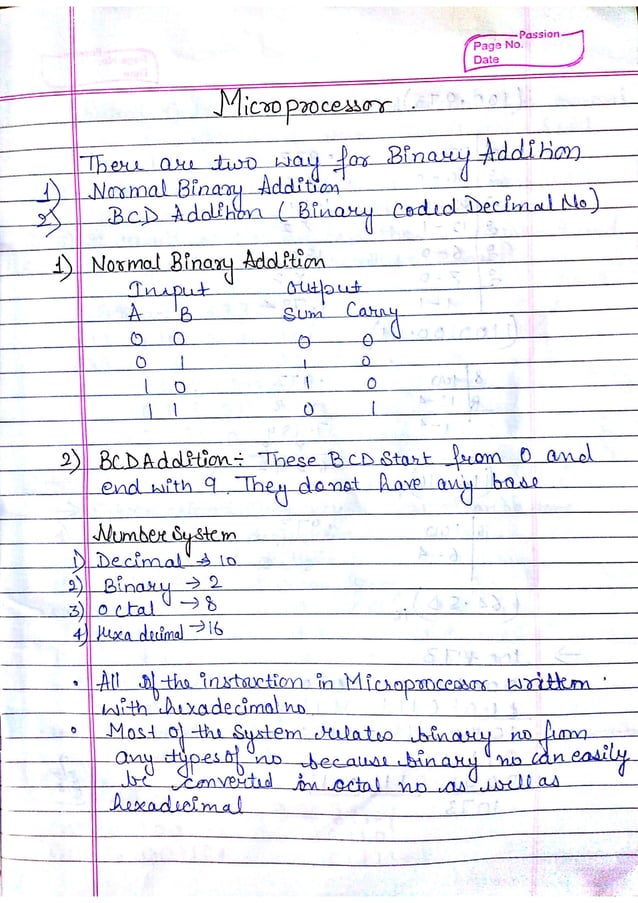 Passion
Page No.
Date
Microprocessor.
There are two way for Binary Addition
1) Normal Binary Addition
2) BCD Addition (Binary Coded Decimal No)
1) Normal Binary Addition
Input Output
A B Sum Carry
0 0 0 0
0 1 1 0
1 0 1 0
1 1 0 1
2) BCD Addition÷ These BCD Start from 0 and
end with 9. They donot have any base
Number System
1) Decimal → 10
2) Binary → 2
3) octal → 8
4) Hexa decimal → 16
• All of the instruction in Microprocessor written
with hexadecimal no.
• Most of the System relates binary no from
any types of no because binary no can easily
be converted in octal no as well as
hexadecimal